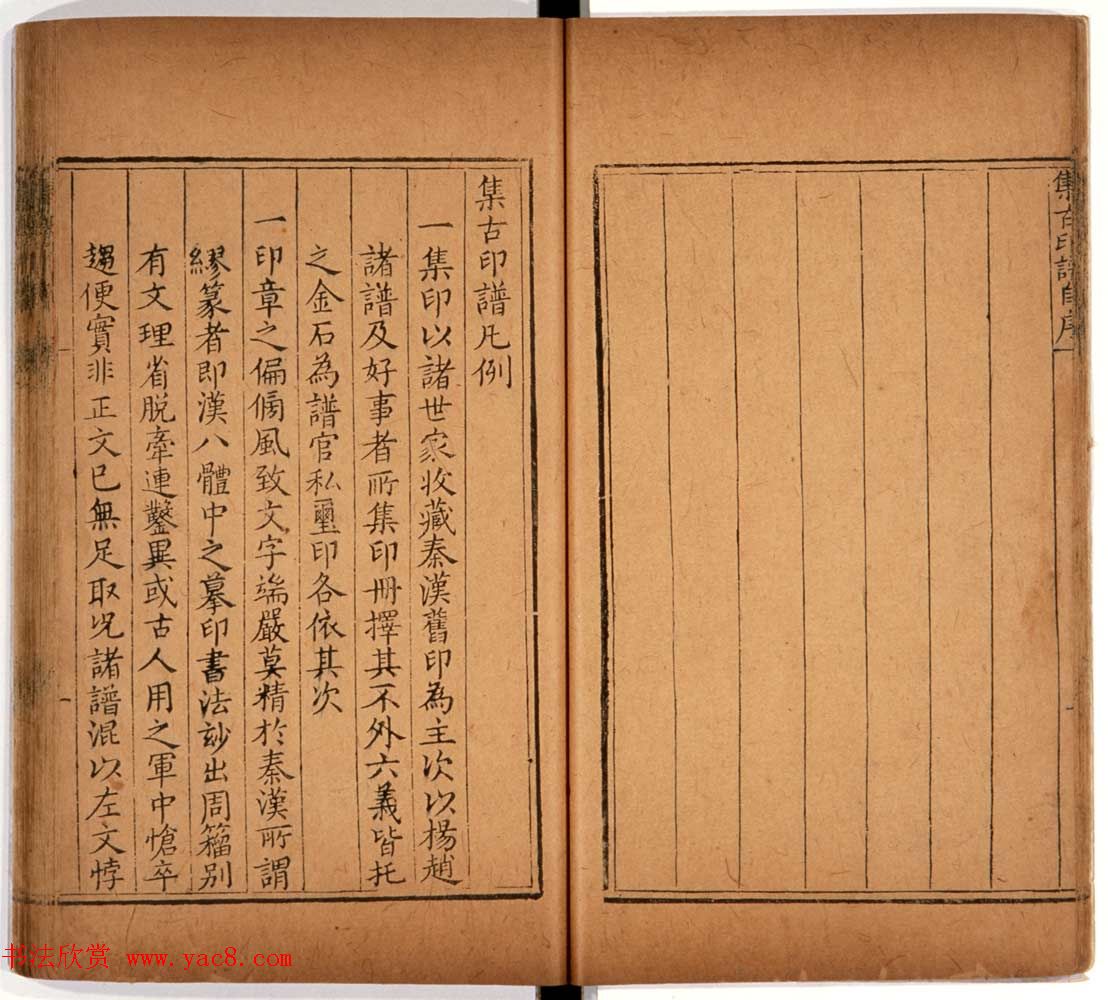 集古印譜自序
集古印譜凡例
一集印以諸世家收藏秦漢舊印為主次以楊趙
諸譜及好事者所集印冊擇其不外六義皆托
之金石為譜官私璽印各依其次
一印章之偏傍風致文字端嚴莫精於秦漢所謂
繆篆者即漢八體中之摹印書法玅出周籀别
有文理省脫牽連鑿異或古人用之軍中愴卒
趨便實非正文已無足取况諸譜混以左文悖
书法欣赏 www.yac8.com